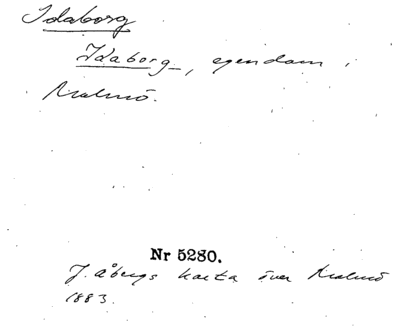 Idaborg
Idaborg, egendom i
Malmö.
Nr 5280.
J. Åbergs karta över Malmö
1883.